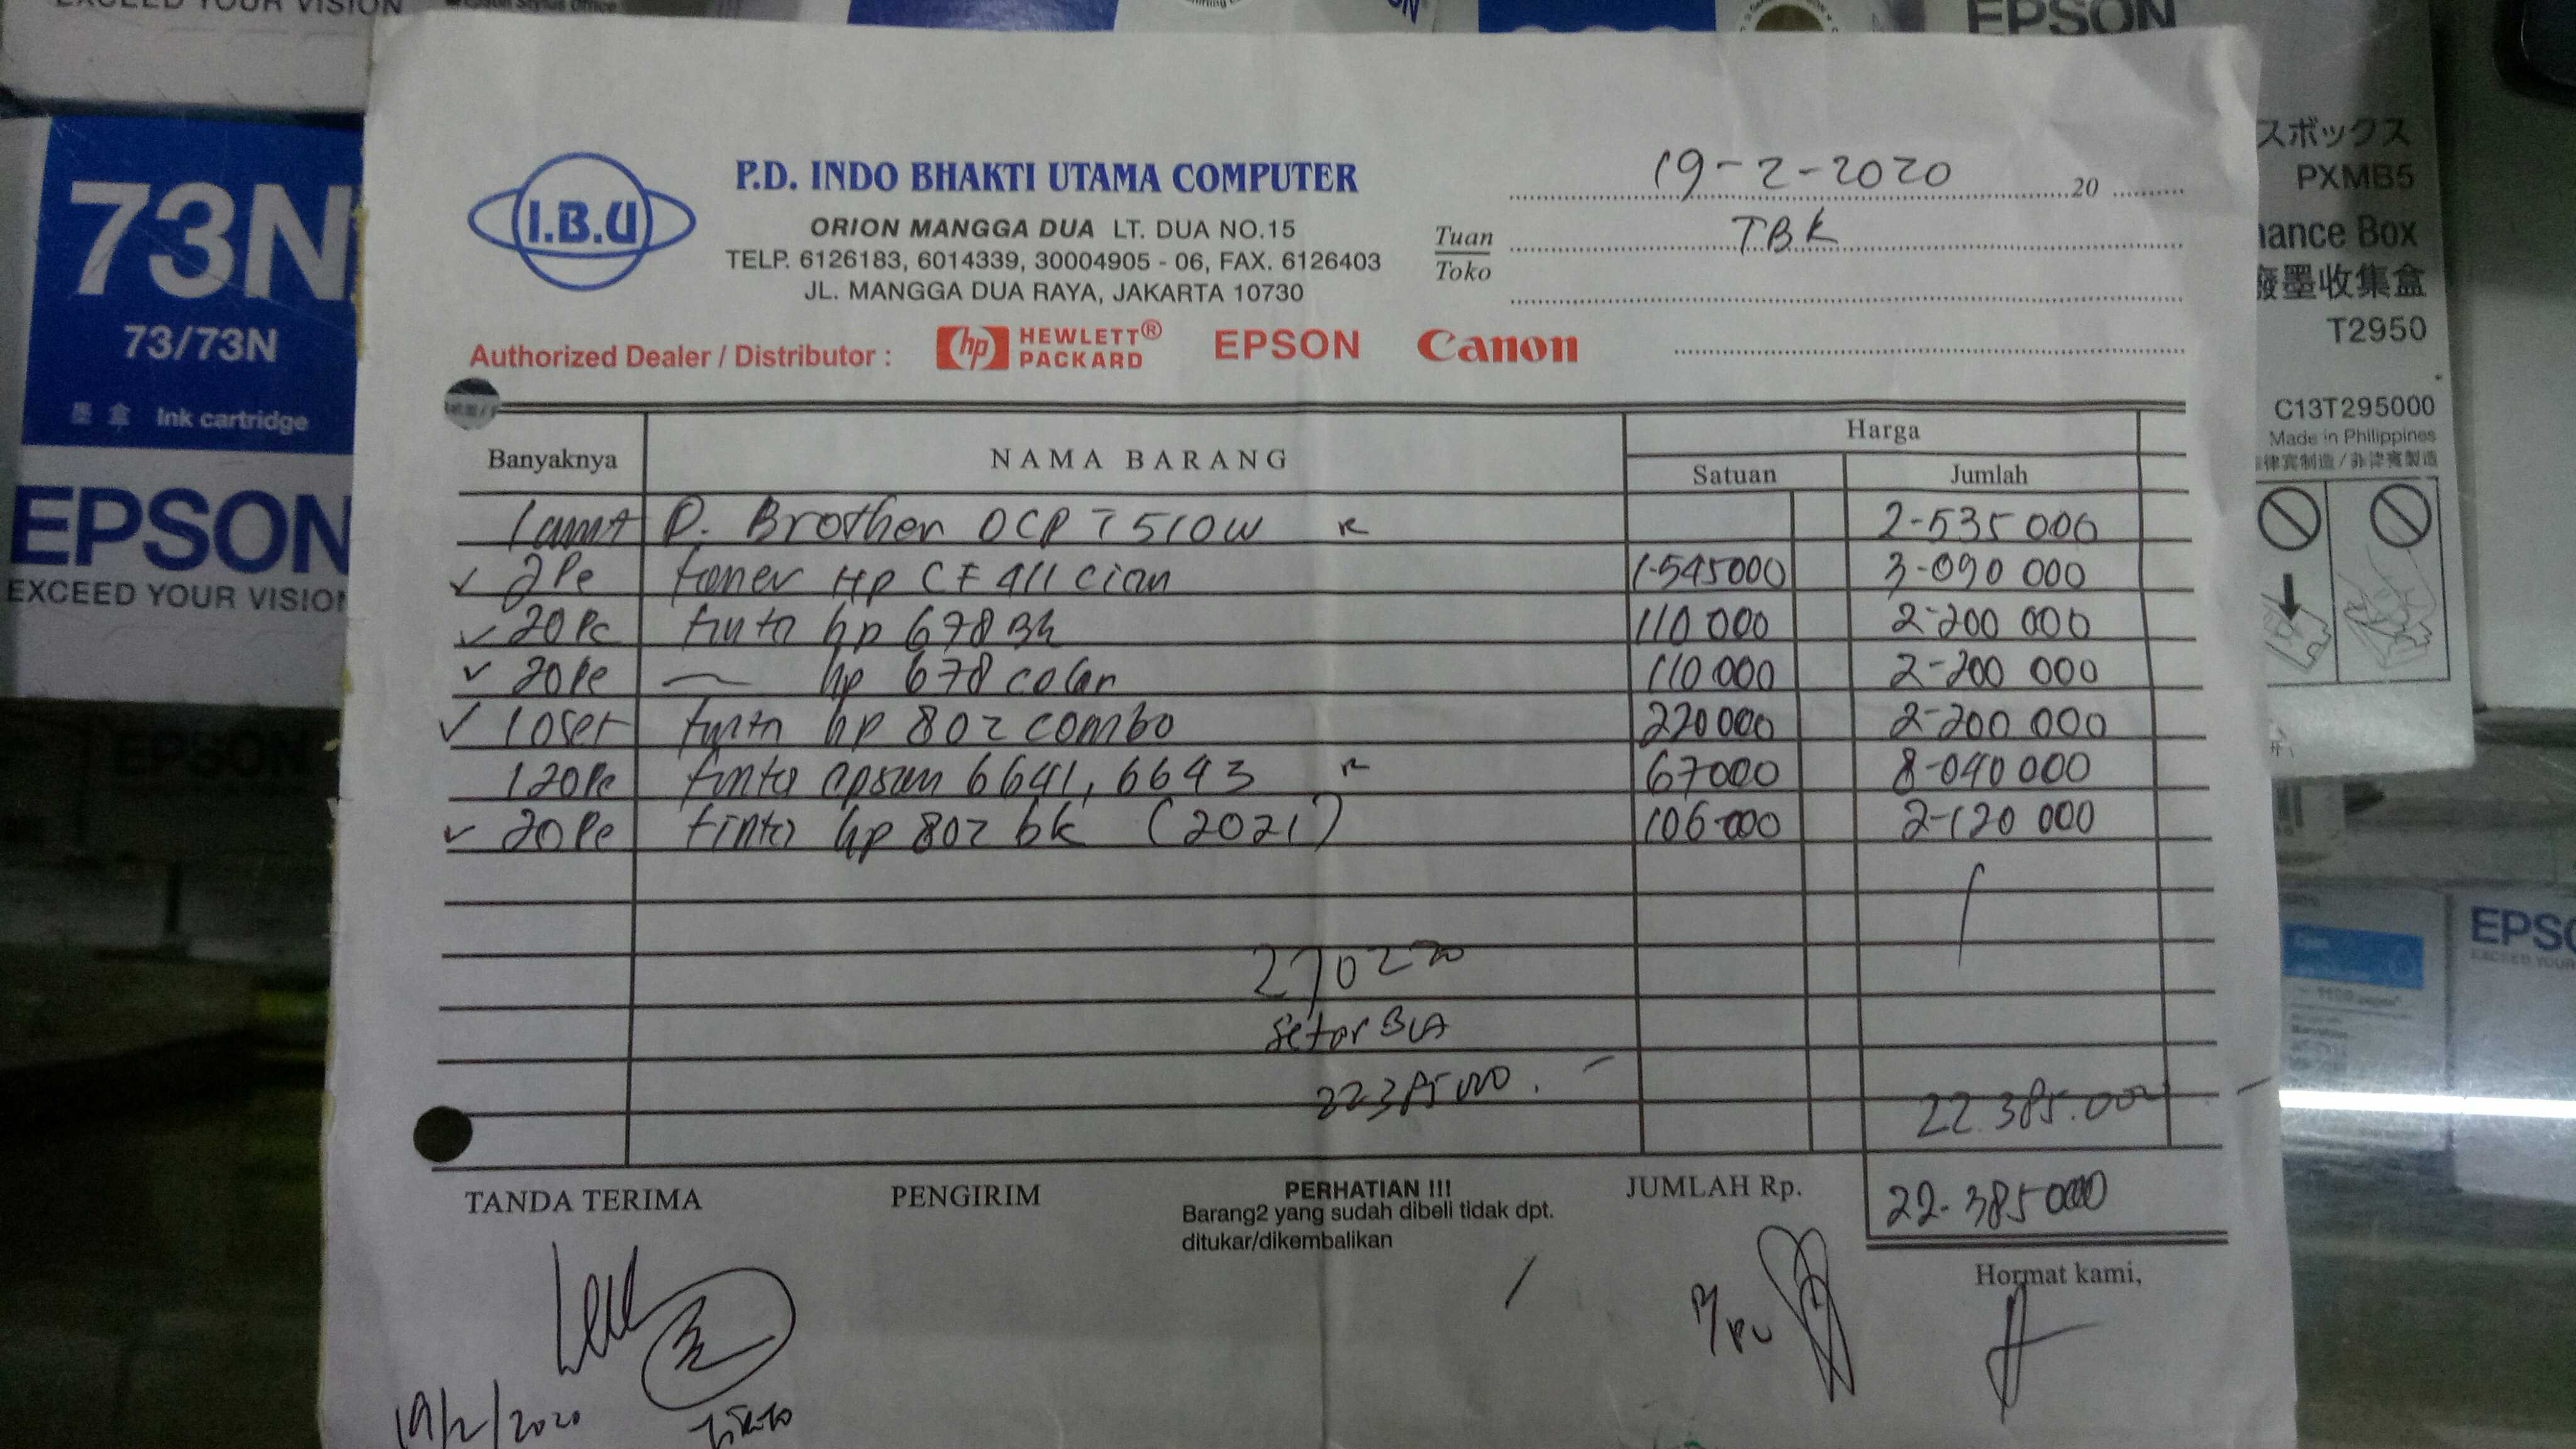 EXCEED YOUR VISION
EPSON
73N
73/73N
墨盒 Ink cartridge
EPSON
EXCEED YOUR VISION
スボックス
PXMB5
nance Box
廢墨收集盒
T2950
C13T295000
Made in Philippines
EPSON
I.B.U
P.D. INDO BHAKTI UTAMA COMPUTER
ORION MANGGA DUA LT. DUA NO.15
TELP. 6126183, 6014339, 30004905 - 06, FAX. 6126403
JL. MANGGA DUA RAYA, JAKARTA 10730
19-2-2020 20
Tuan TBK
Toko
Authorized Dealer / Distributor : hp HEWLETT® PACKARD EPSON Canon
Banyaknya NAMA BARANG Harga
Satuan Jumlah
1 P. Brother DCP T510W 2-535 000
2Pc toner Hp CF 411 cian 1-545000 3-090 000
20Pc tinta hp 678 Bk 110 000 2-200 000
20Pc hp 678 color 110 000 2-200 000
10set tinta hp 802 combo 220 000 2-200 000
120Pc tinta epson 6641, 6643 67000 8-040 000
20Pc tinta hp 802 bk (2021) 106 000 2-120 000
270220
Setor BCA
22385000.-
22.385.000
TANDA TERIMA PENGIRIM PERHATIAN !!! JUMLAH Rp. 22-385 000
Barang2 yang sudah dibeli tidak dpt.
ditukar/dikembalikan
Hormat kami,
19/2/2020